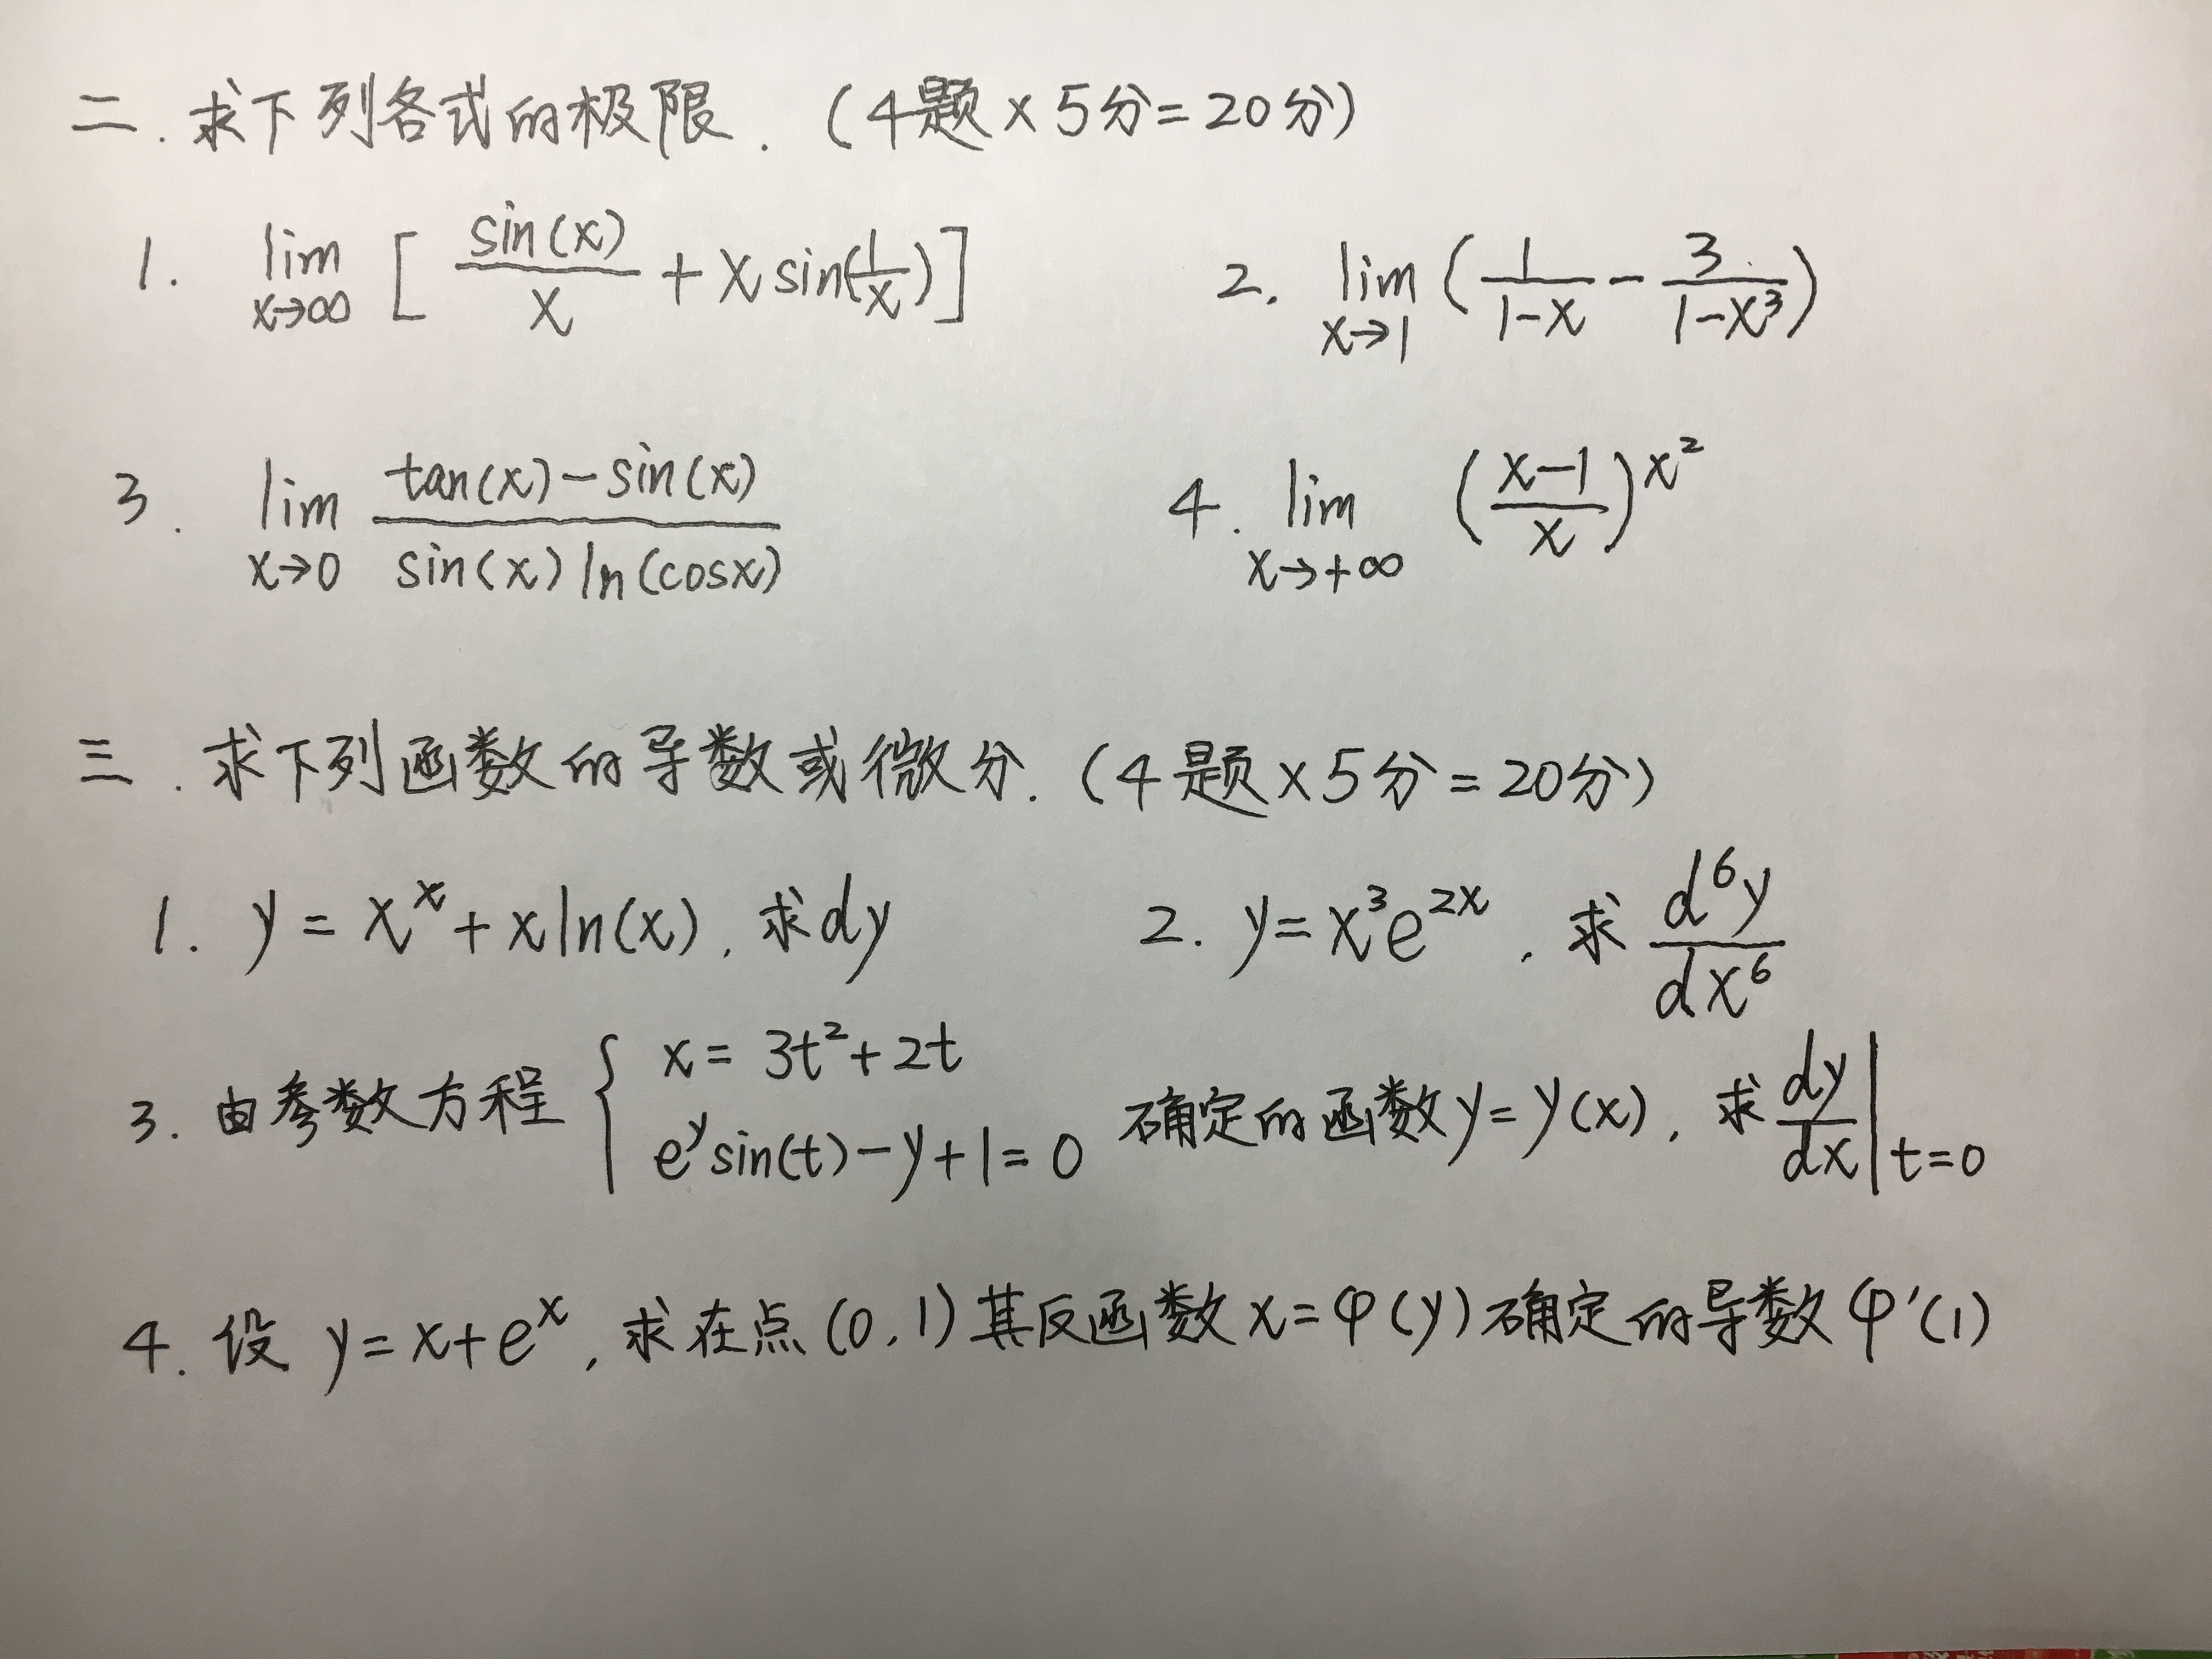 二. 求下列各式的极限. (4题×5分=20分)
1. lim x→∞ [ sin(x)/x + x sin(1/x) ]
2. lim x→1 ( 1/(1-x) - 3/(1-x³) )
3. lim x→0 (tan(x)-sin(x))/(sin(x) ln(cosx))
4. lim x→+∞ ((x-1)/x)^x²
三. 求下列函数的导数或微分. (4题×5分=20分)
1. y = x^x + x ln(x), 求dy
2. y = x³e^2x, 求 d⁶y/dx⁶
3. 由参数方程 { x = 3t²+2t
e^y sin(t)-y+1=0 确定的函数y=y(x), 求 dy/dx | t=0
4. 设 y=x+e^x, 求在点(0,1)其反函数x=φ(y)确定的导数φ'(1)